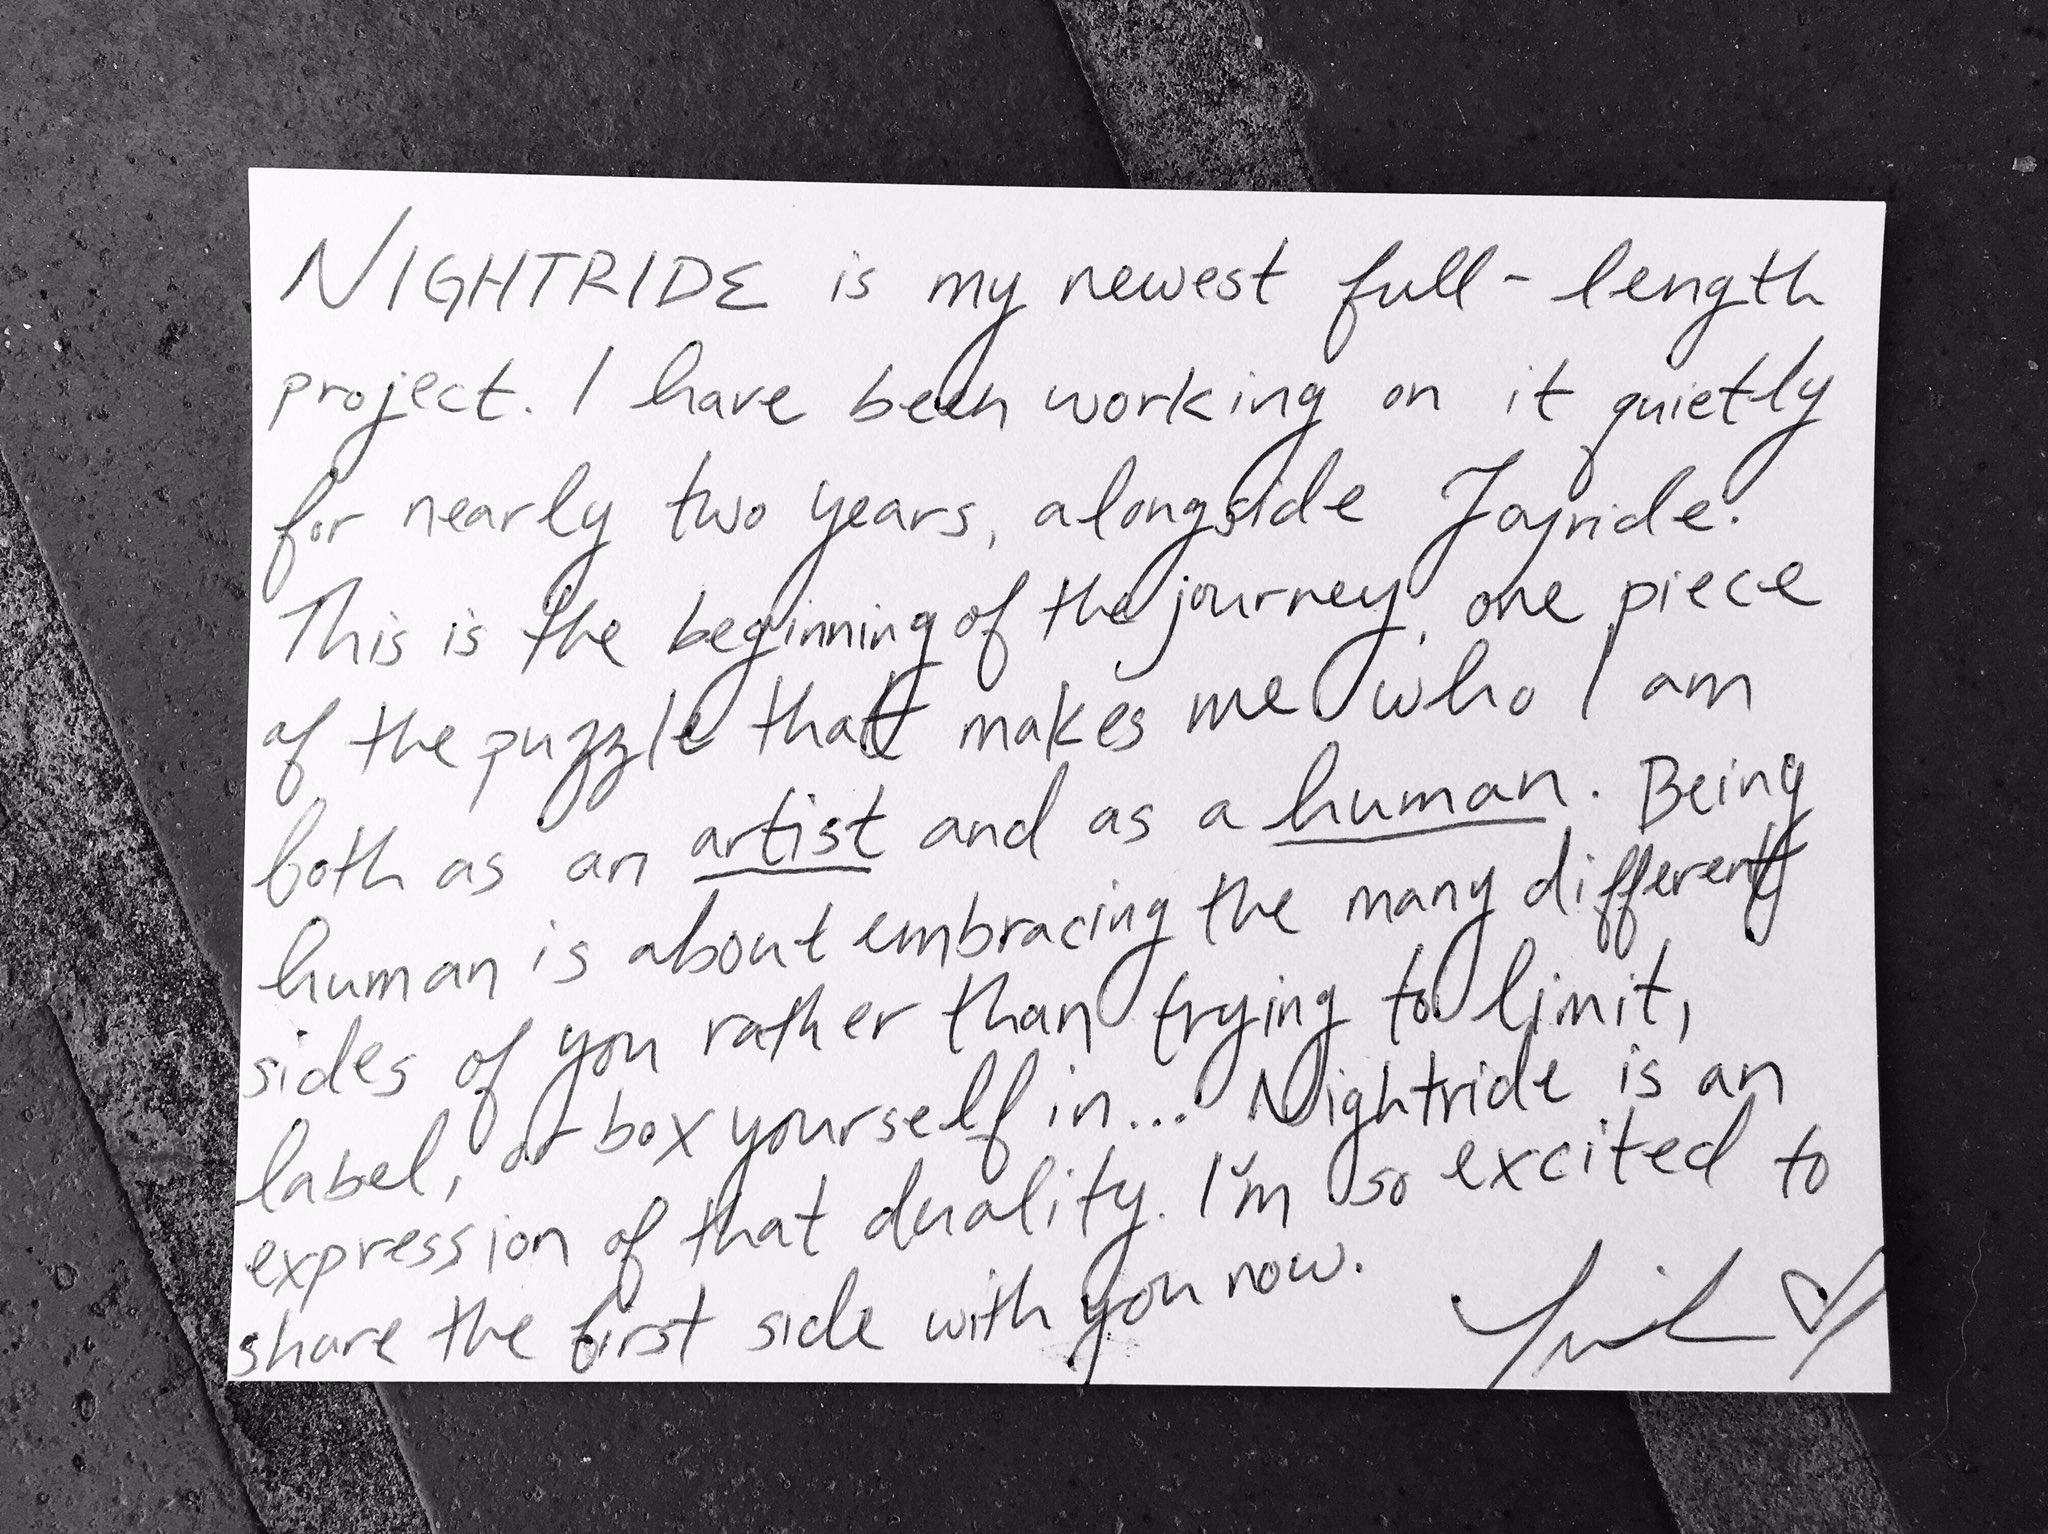 NIGHTRIDE is my newest full-length
project. I have been working on it quietly
for nearly two years, alongside Joyride.
This is the beginning of the journey, one piece
of the puzzle that makes me who I am
both as an artist and as a human. Being
human is about embracing the many different
sides of you rather than trying to limit,
label, or box yourself in... Nightride is an
expression of that duality. I'm so excited to
share the first side with you now.